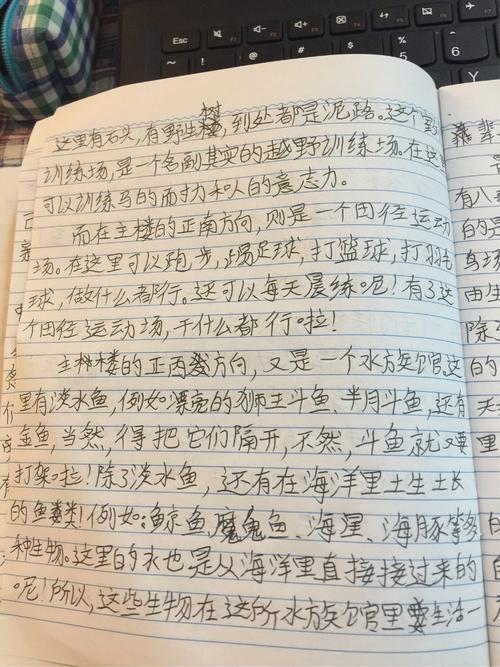 Esc
%
5
^
6
Y
~
!
@
#
$
这里有石头,有野生树,到处都是泥路。这个野
训练场,是一个名副其实的越野训练场。在这里
可以训练马的耐力和人的意志力。
而在主楼的正南方向,则是一个田径运动
场。在这里可以跑步,踢足球,打篮球,打羽毛
球,做什么都行。还可以每天晨练呢!有了这
个田径运动场,干什么都行啦!
主楼的正西方向,又是一个水族馆。这
里有淡水鱼,例如漂亮的狮王斗鱼、半月斗鱼,还有
金鱼,当然,得把它们隔开,不然,斗鱼就要
打架啦!除了淡水鱼,还有在海洋里土生土长
的鱼类!例如:鲸鱼,魔鬼鱼、海星、海豚等多
种生物。这里的水也是从海洋里直接接过来的
呢!所以,这些生物在这所水族馆里生活一
有八
的
马场
由生
除了
的
天
里